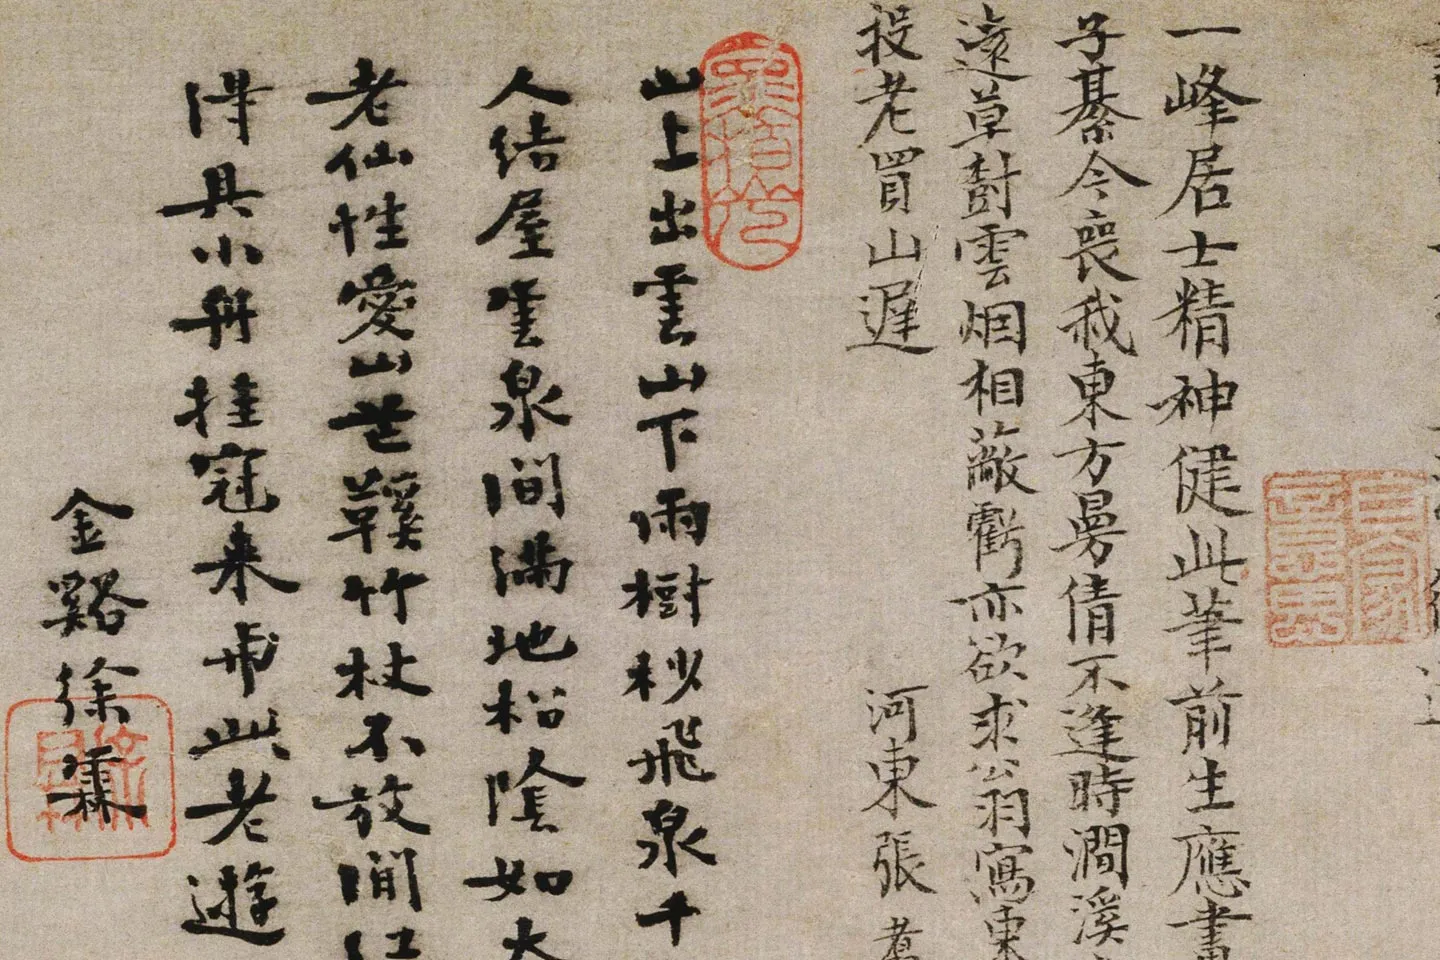 一峰居士精神健此筆前生應畫
子綦今喪我東方曼倩不逢時澗溪
遠草樹雲烟相蔽虧亦欲求公羽寫東
投老買山遲
河東張翥
山上出雲山下雨樹杪飛泉千
人結屋雲泉間滿地松陰如太
老仙性愛山芒鞵竹杖不放閒江
得具小舟挂冠来弔此老遊
金谿徐霖